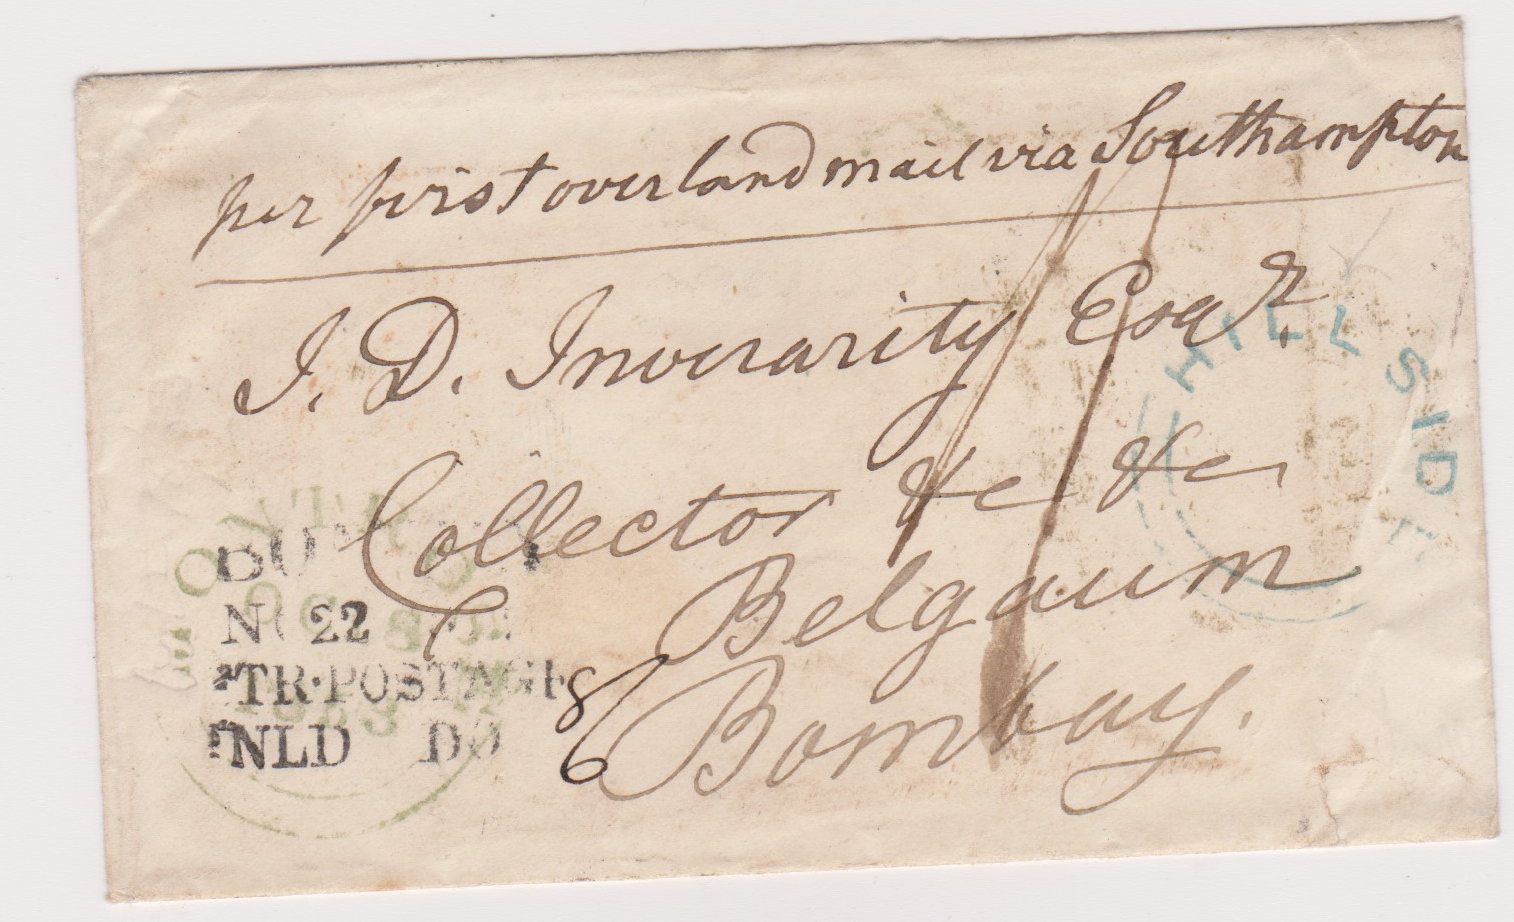 per first overland mail via Southampton
J. D. Inverarity Esqr.
Collector &c &c
Belgaum
Bombay.
HILLSIDE
MONTROSE
22
STR·POSTAGE 8
INLD DO 6